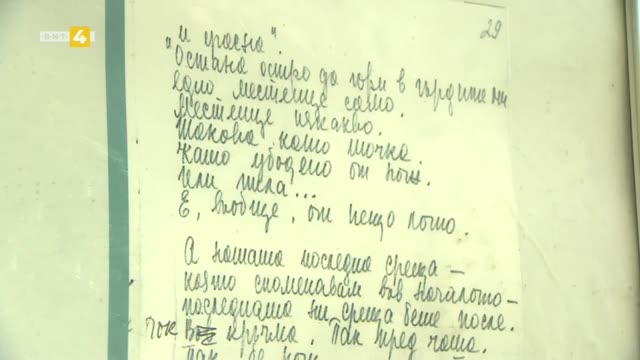 БНТ 4
29
и красна".
"Остана остро да гори в гърдите ми
едно местенце само.
Местенце някакво.
Такова като точка.
Като убодено от нож.
Или игла...
Е, въобще, от нещо лошо.
А нашата последна среща –
която споменавам във началото –
последната ни среща беше после.
кръчма. Пак пред чаша.
Пак